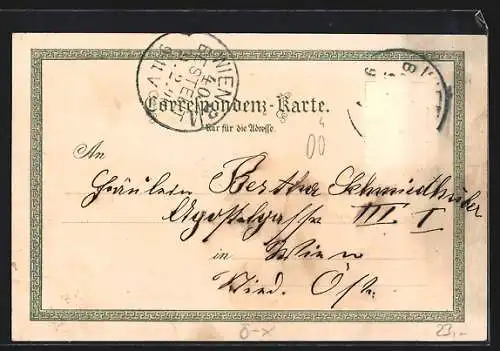 WIEN
BESTELLT
Correspondenz-Karte.
Nur für die Adresse.
An
Fräulein Bertha Schmiedhuber
Apostelgasse III I
in Wien
Nied. Öst.
23,-